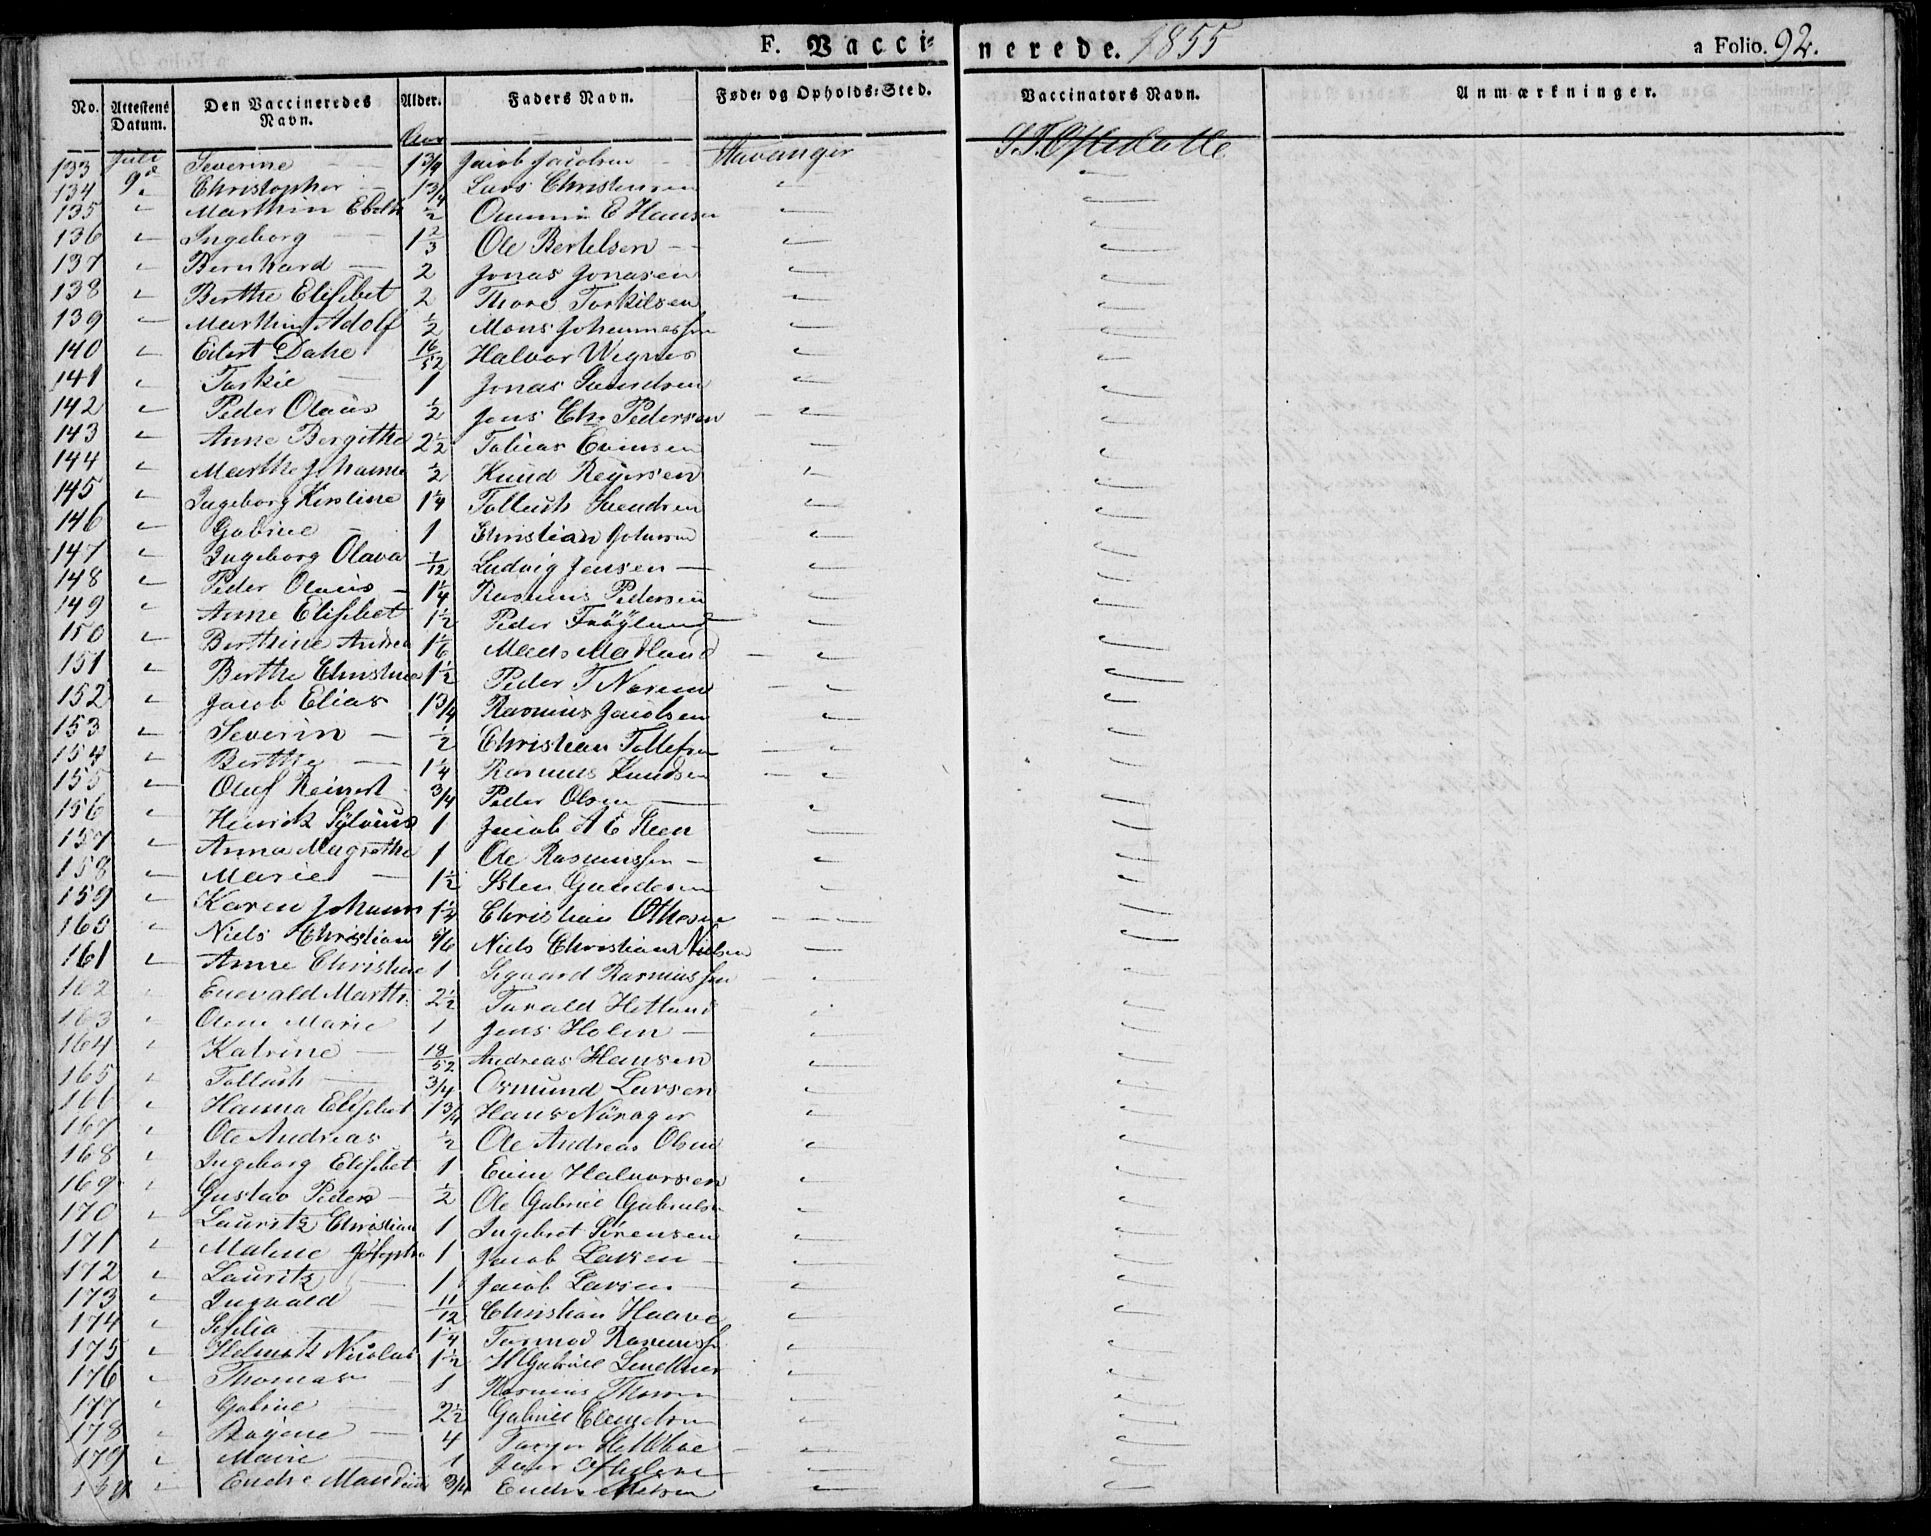 F. Vacci- nerede. 1855 a Folio. 92.
No. Attestens Datum. Den Vaccineredes Navn. Alder. Faders Navn. Føde- og Opholds-Sted. Vaccinators Navn. Anmærkninger.
Aar
133 Juli 9de Severine 1 3/4 Jacob Jacobsen Stavanger
134 " Christopher 1 3/4 Lars Christensen "
135 " Marthin 1/2 E Hansen "
136 " Ingeborg 1 2/3 Ole Bertelsen "
137 " Bernhard 2 Jonas Jonasen "
138 " Berthe Elisebet 2 Thore Torkilsen "
139 " Marthin Adolf 1/2 Mons Johannessen "
140 " Eilert Dahe 16/52 Halvor Wignes "
141 " 1 Jonas Svendsen "
142 " Peder Olaus 1/2 Jens Chr Pedersen "
143 " Anne Bergithe 2 1/2 Tobias Evensen "
144 " Marthe Johanne 1/2 Knud Reiersen "
145 " Ingeborg Kirstine 1 1/4 Svendsen "
146 " Gabriel 1 Christian Johnsen "
147 " Ingeborg Olava 1/12 Ludvig Jensen "
148 " Peder Olaus 1 1/4 Rasmus Pedersen "
149 " Anne Elisebet 1 1/2 Peder Frøylund "
150 " Berthine Andrea 1 1/6 Mads Madland "
151 " Berthe Christine 1 1/2 Peder T Noreim "
152 " Jacob Elias 1 3/4 Rasmus Jacobsen "
153 " Severin 1/2 Christian Tollefsen "
154 " Berthe 1 1/4 Rasmus Knudsen "
155 " Oluf Reinert 3/4 Peder Olsen "
156 " Henrik Sylvius 1 Jacob A E Steen "
157 " Anna Magrethe 1 Ole Rasmussen "
158 " Marie 1 1/2 Sten Gundersen "
159 " Karen Johanne 1 1/4 Christian Othesen "
160 " Niels Christian 5/6 Niels Christian Nielsen "
161 " Anne Christine 1 Rasmussen "
162 " Enevald Marth. 2 1/2 Tarald Hetland "
163 " Olene Marie 1 Jens Holm "
164 " Katrine 18/52 Andreas Hansen "
165 " 3/4 Osmund Larsen "
166 " Hanna Elisebet 1 3/4 Hans Nörager "
167 " Ole Andreas 1/2 Ole Andreas Olsen "
168 " Ingeborg Elisebet 1 Even Halvorsen "
169 " Gustav Peder 1/2 Ole Gabriel Gabrielsen "
170 " Lauritz Christian 1 Ingebret Sörensen "
171 " Malene Josephe 1 Jacob Larsen "
172 " Lauritz 1 Jacob Larsen "
173 " Ingvald 11/12 Christian Haave "
174 " Sofelia 1 1/4 Tormod Rasmussen "
175 " Nicolai 1 1/2 H Gabriel "
176 " Thomas 1 Rasmus "
177 " Gabriel 2 1/2 Gabriel "
178 " 4 "
179 " Marie 1 "
180 " Endre 3/4 Endre "